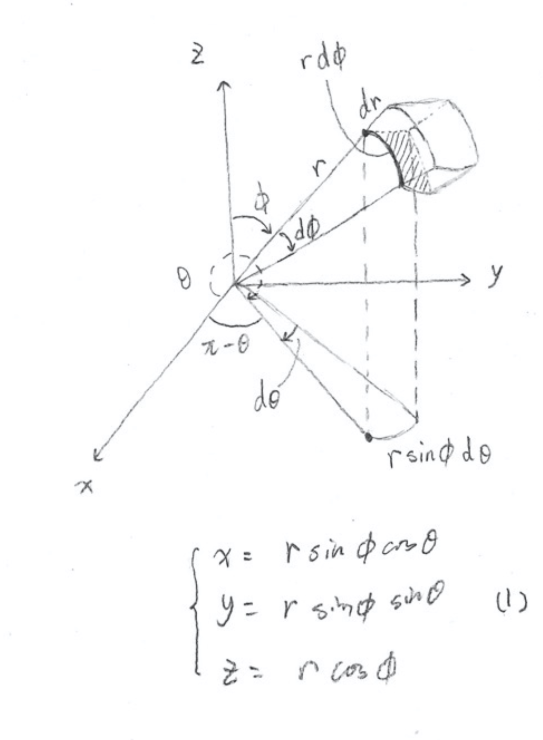 z
r dϕ
dr
r
ϕ
dϕ
θ
y
π-θ
dθ
x
r sinϕ dθ
x = r sin ϕ cos θ
y = r sinϕ sinθ (1)
z = r cos ϕ